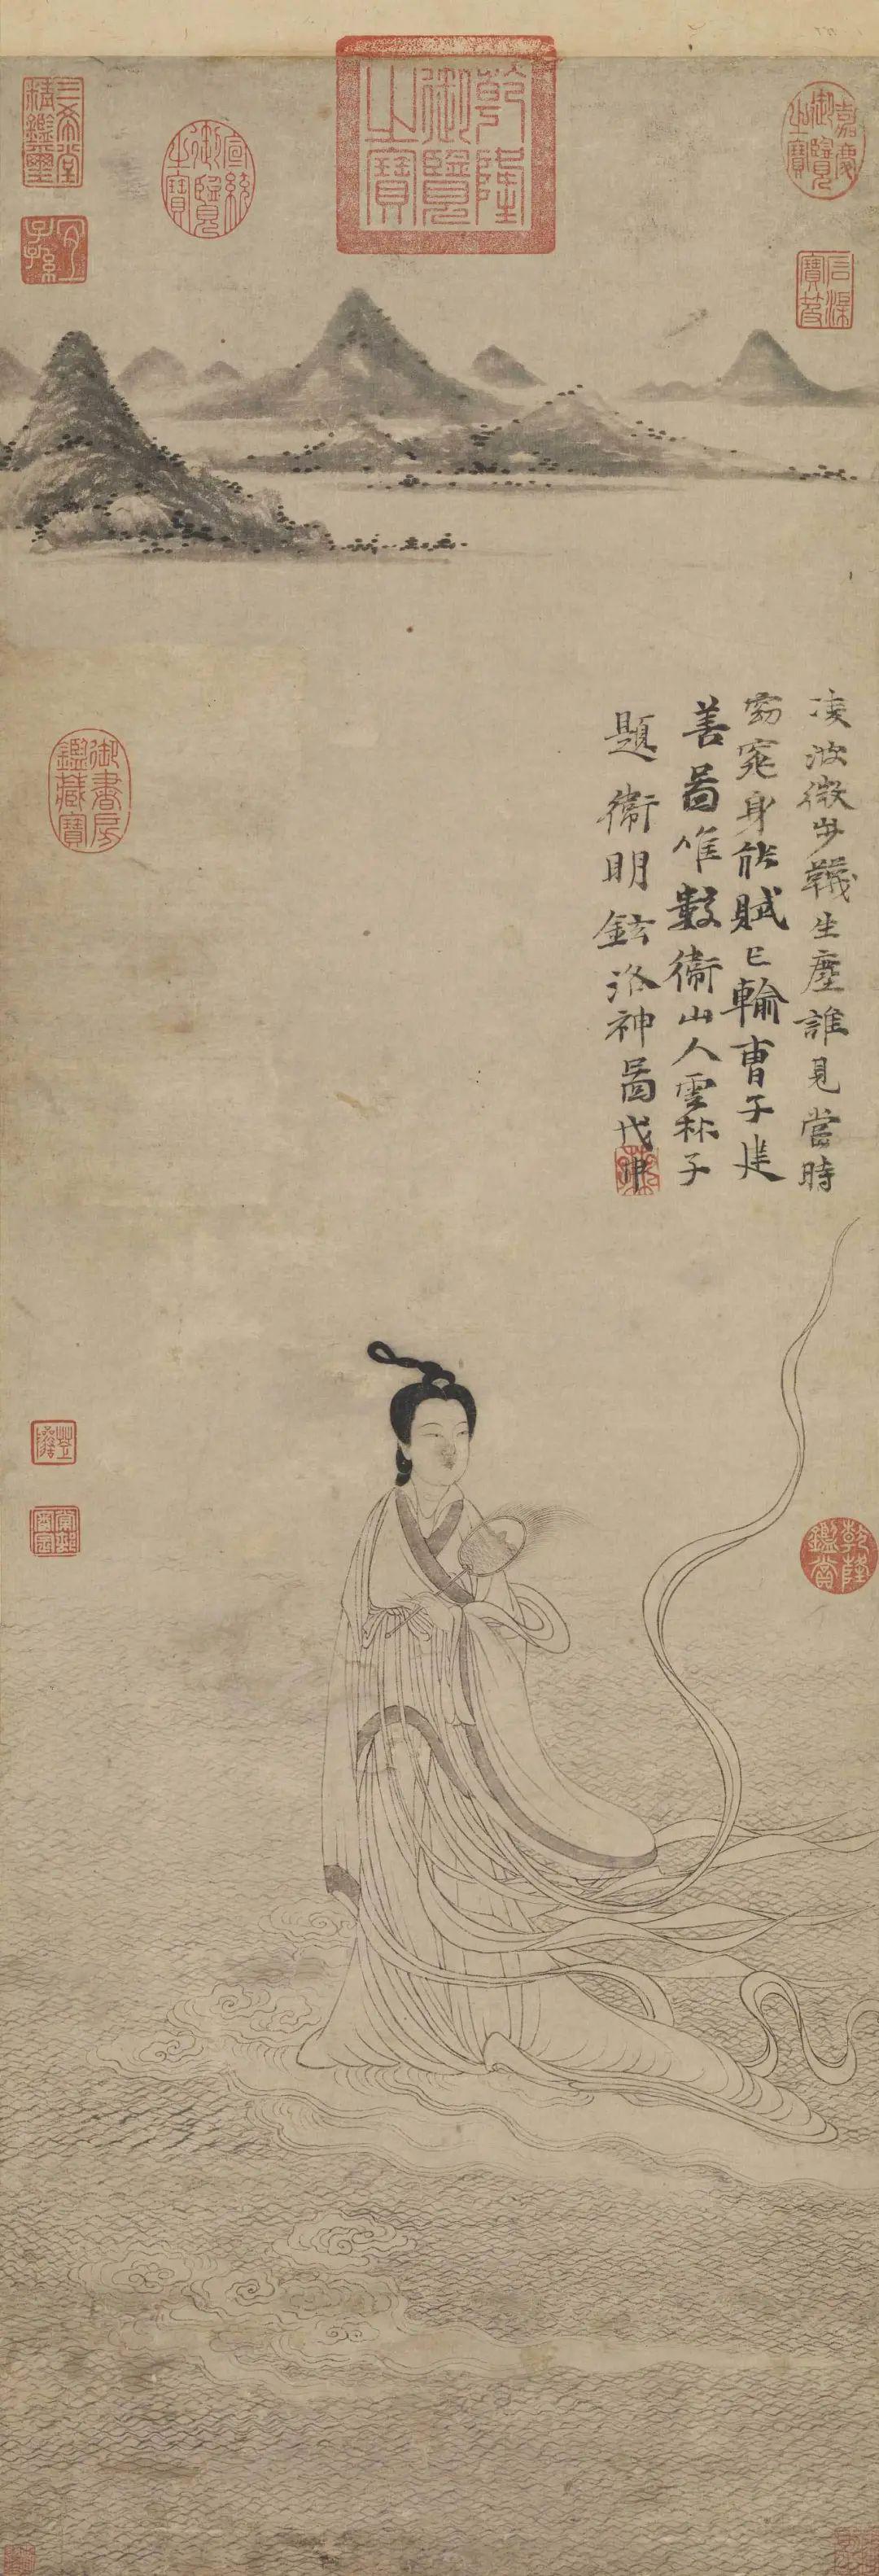 凌波微步韈生塵誰見當時
窈窕身能賦已輸曹子建
善畫唯數衞山人雲林子
題衞明鉉洛神圖戊申
乾隆御覽之寶
嘉慶御覽之寶
宣統御覽之寶
三希堂精鑑璽
宜子孫
石渠寶笈
御書房鑑藏寶
乾隆鑑賞